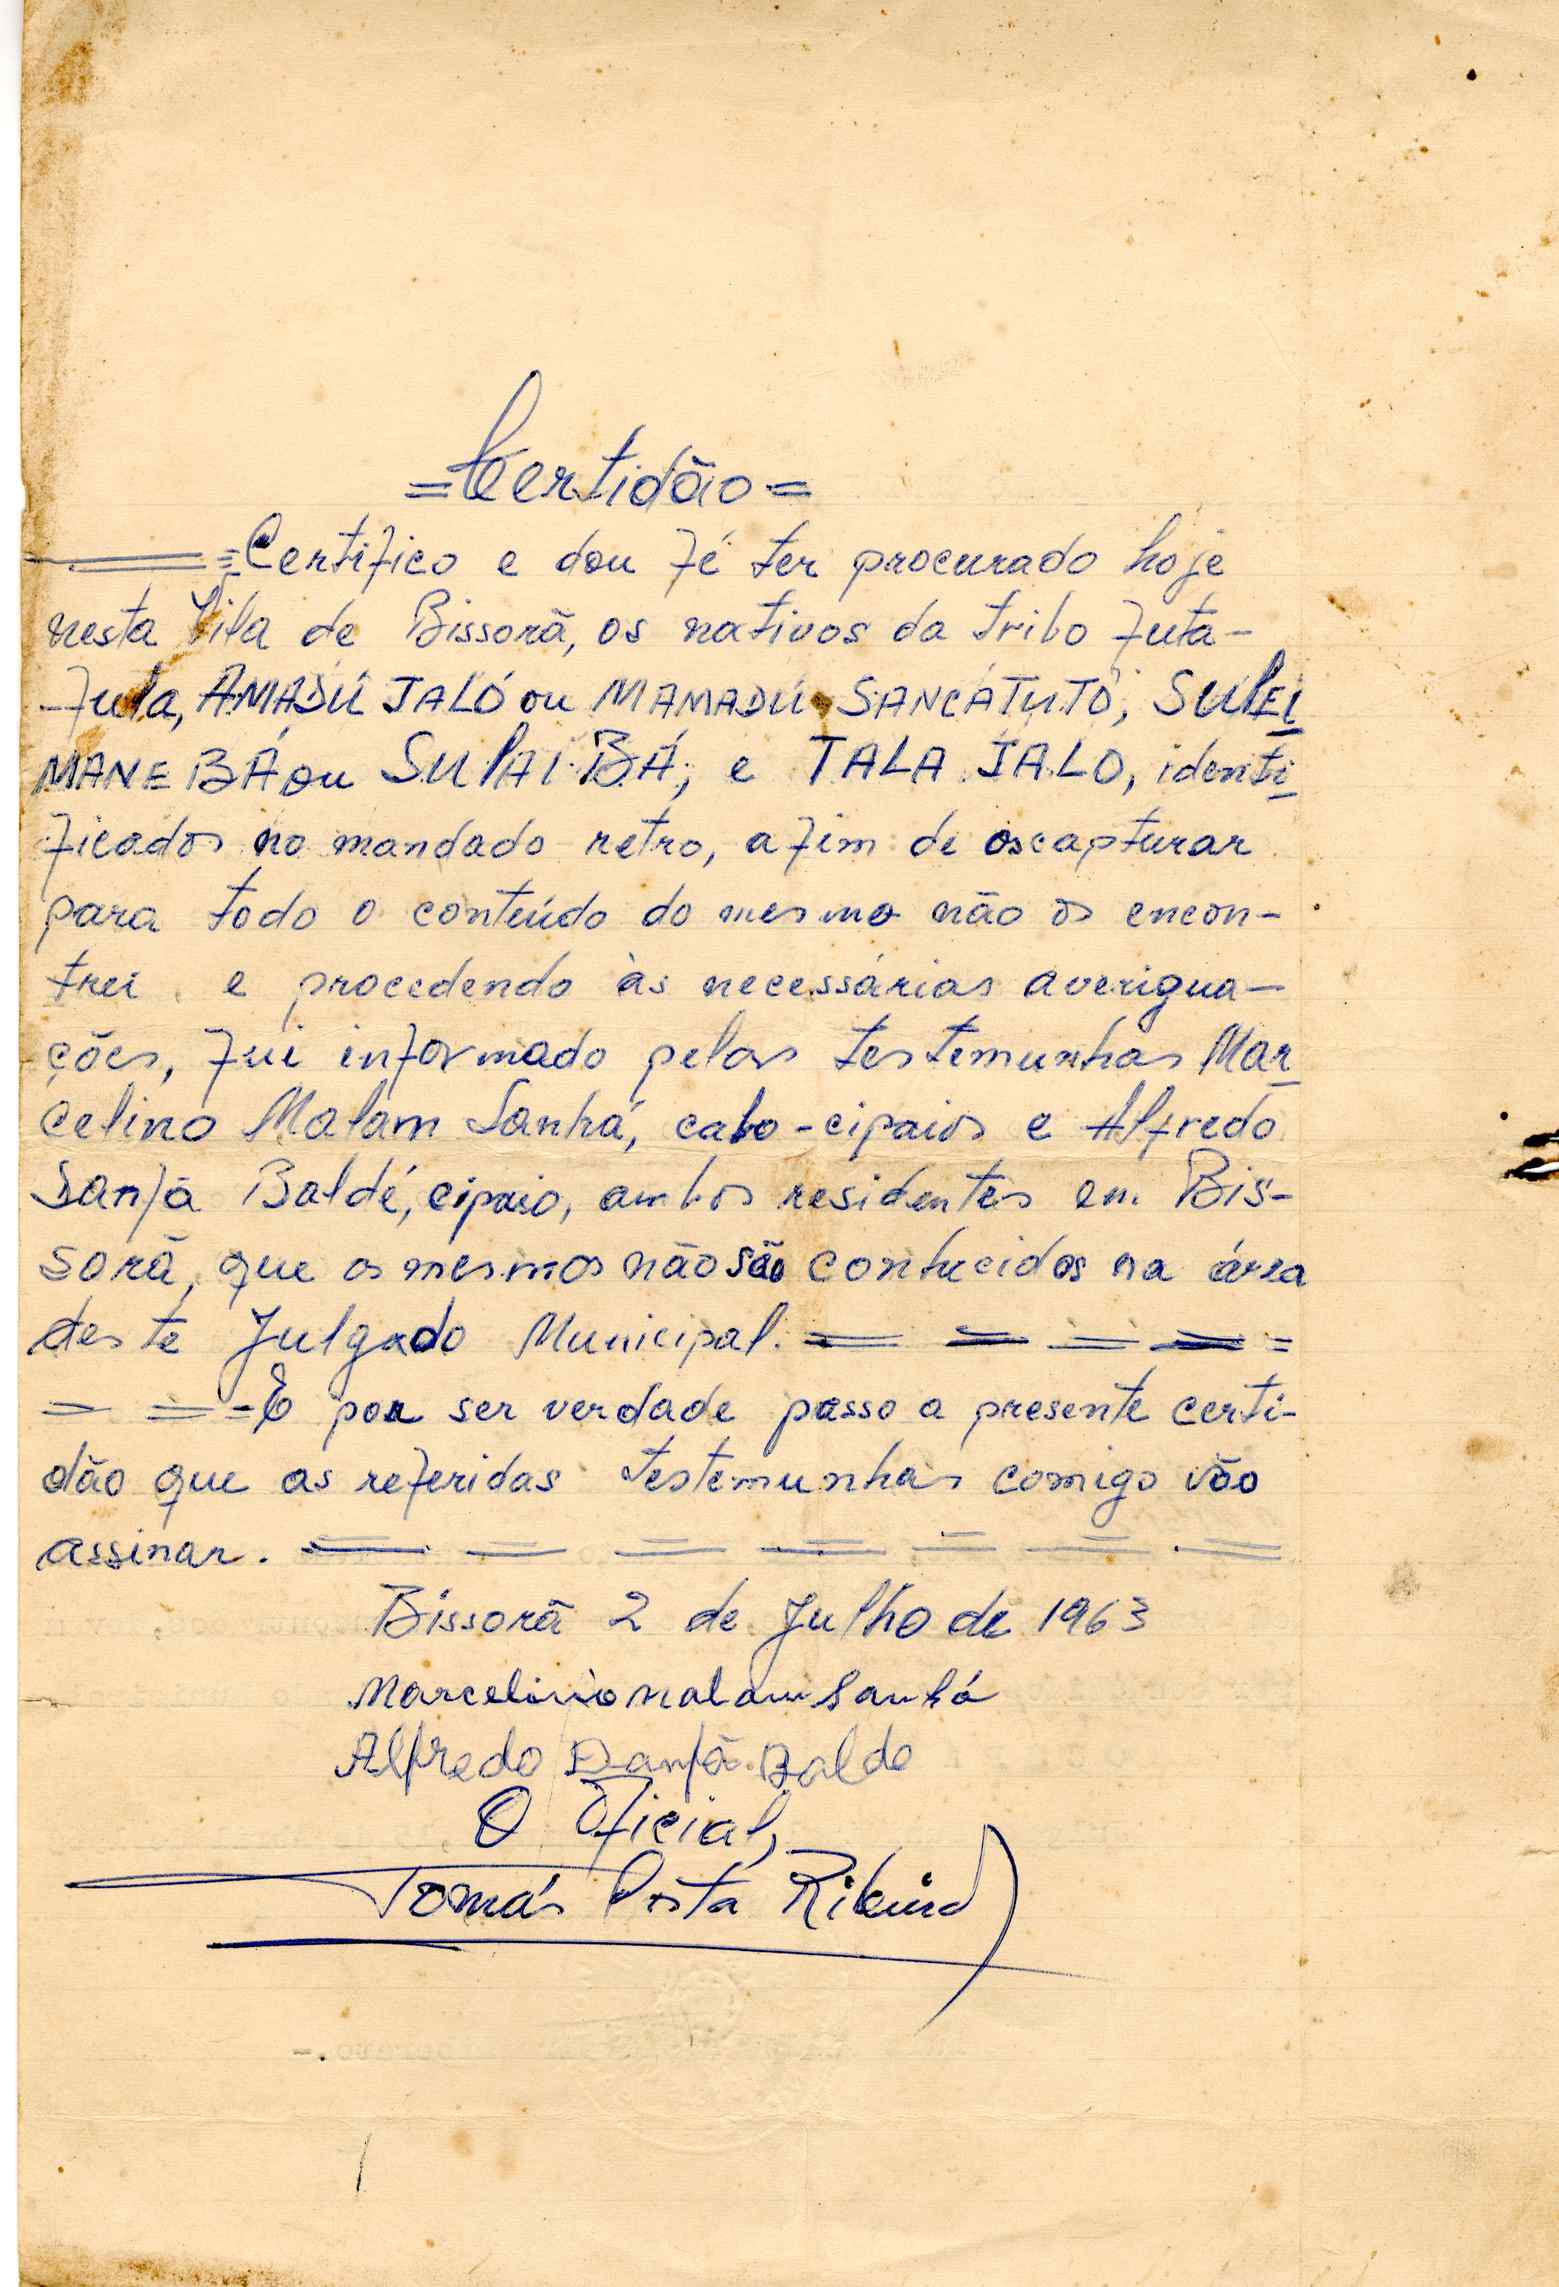 = Certidão =
= Certifico e dou fé ter procurado hoje
nesta Vila de Bissorã, os nativos da tribo futa-
-fula, AMADÚ JALÓ ou MAMADÚ SANCÁTUTÓ, SULEI
MANE BÁ ou SULAI BÁ, e TALA JALO, identi
ficados no mandado retro, afim de os capturar
para todo o conteúdo do mesmo não os encon-
trei e procedendo às necessárias averigua-
ções, fui informado pelas testemunhas Mar
celino Malam Sanhá, cabo-cipaios e Alfredo
Sanfá Baldé, cipaio, ambos residentes em Bis-
sorã, que os mesmos não são conhecidos na área
deste Julgado Municipal. = = = = =
= = = E por ser verdade passo a presente certi-
dão que as referidas testemunhas comigo vão
assinar. = = = = = = =
Bissorã 2 de Julho de 1963
Marcelino malam Sanhá
Alfredo Danfá Baldé
O Oficial,
Tomás Costa Ribeiro